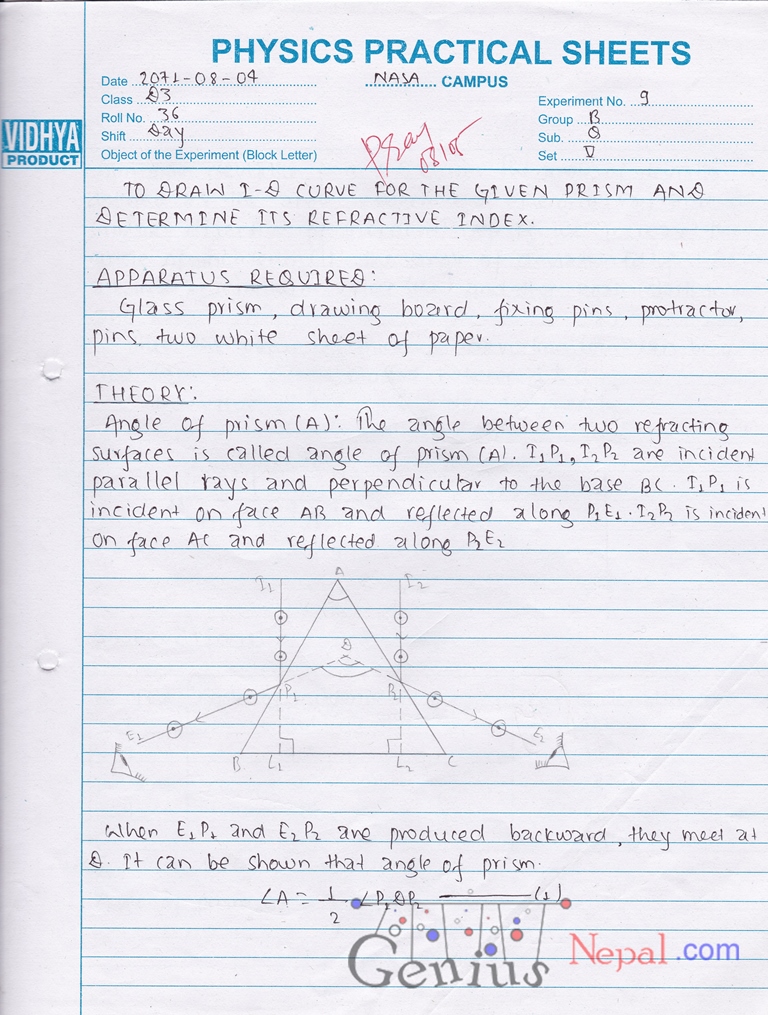 PHYSICS PRACTICAL SHEETS
Date 2071-08-04
NASA CAMPUS
Class D3
Experiment No. 9
Roll No. 36
Group B
Shift Day
Sub. O
Set V
08/05
VIDHYA
PRODUCT
Object of the Experiment (Block Letter)
TO DRAW I-D CURVE FOR THE GIVEN PRISM AND
DETERMINE ITS REFRACTIVE INDEX.
APPARATUS REQUIRED:
Glass prism, drawing board, fixing pins, protractor,
pins, two white sheet of paper.
THEORY:
Angle of prism (A): The angle between two refracting
surfaces is called angle of prism (A). I₁P₁, I₂P₂ are incident
parallel rays and perpendicular to the base BC. I₁P₁ is
incident on face AB and reflected along P₁E₁. I₂P₂ is incident
on face AC and reflected along P₂E₂
I₁ A I₂
D
P₁ P₂
E₁ E₂
B L₁ L₂ C
When E₁P₁ and E₂P₂ are produced backward, they meet at
D. It can be shown that angle of prism.
∠A = 1/2 ∠P₁DP₂ ——— (1)
Genius Nepal.com